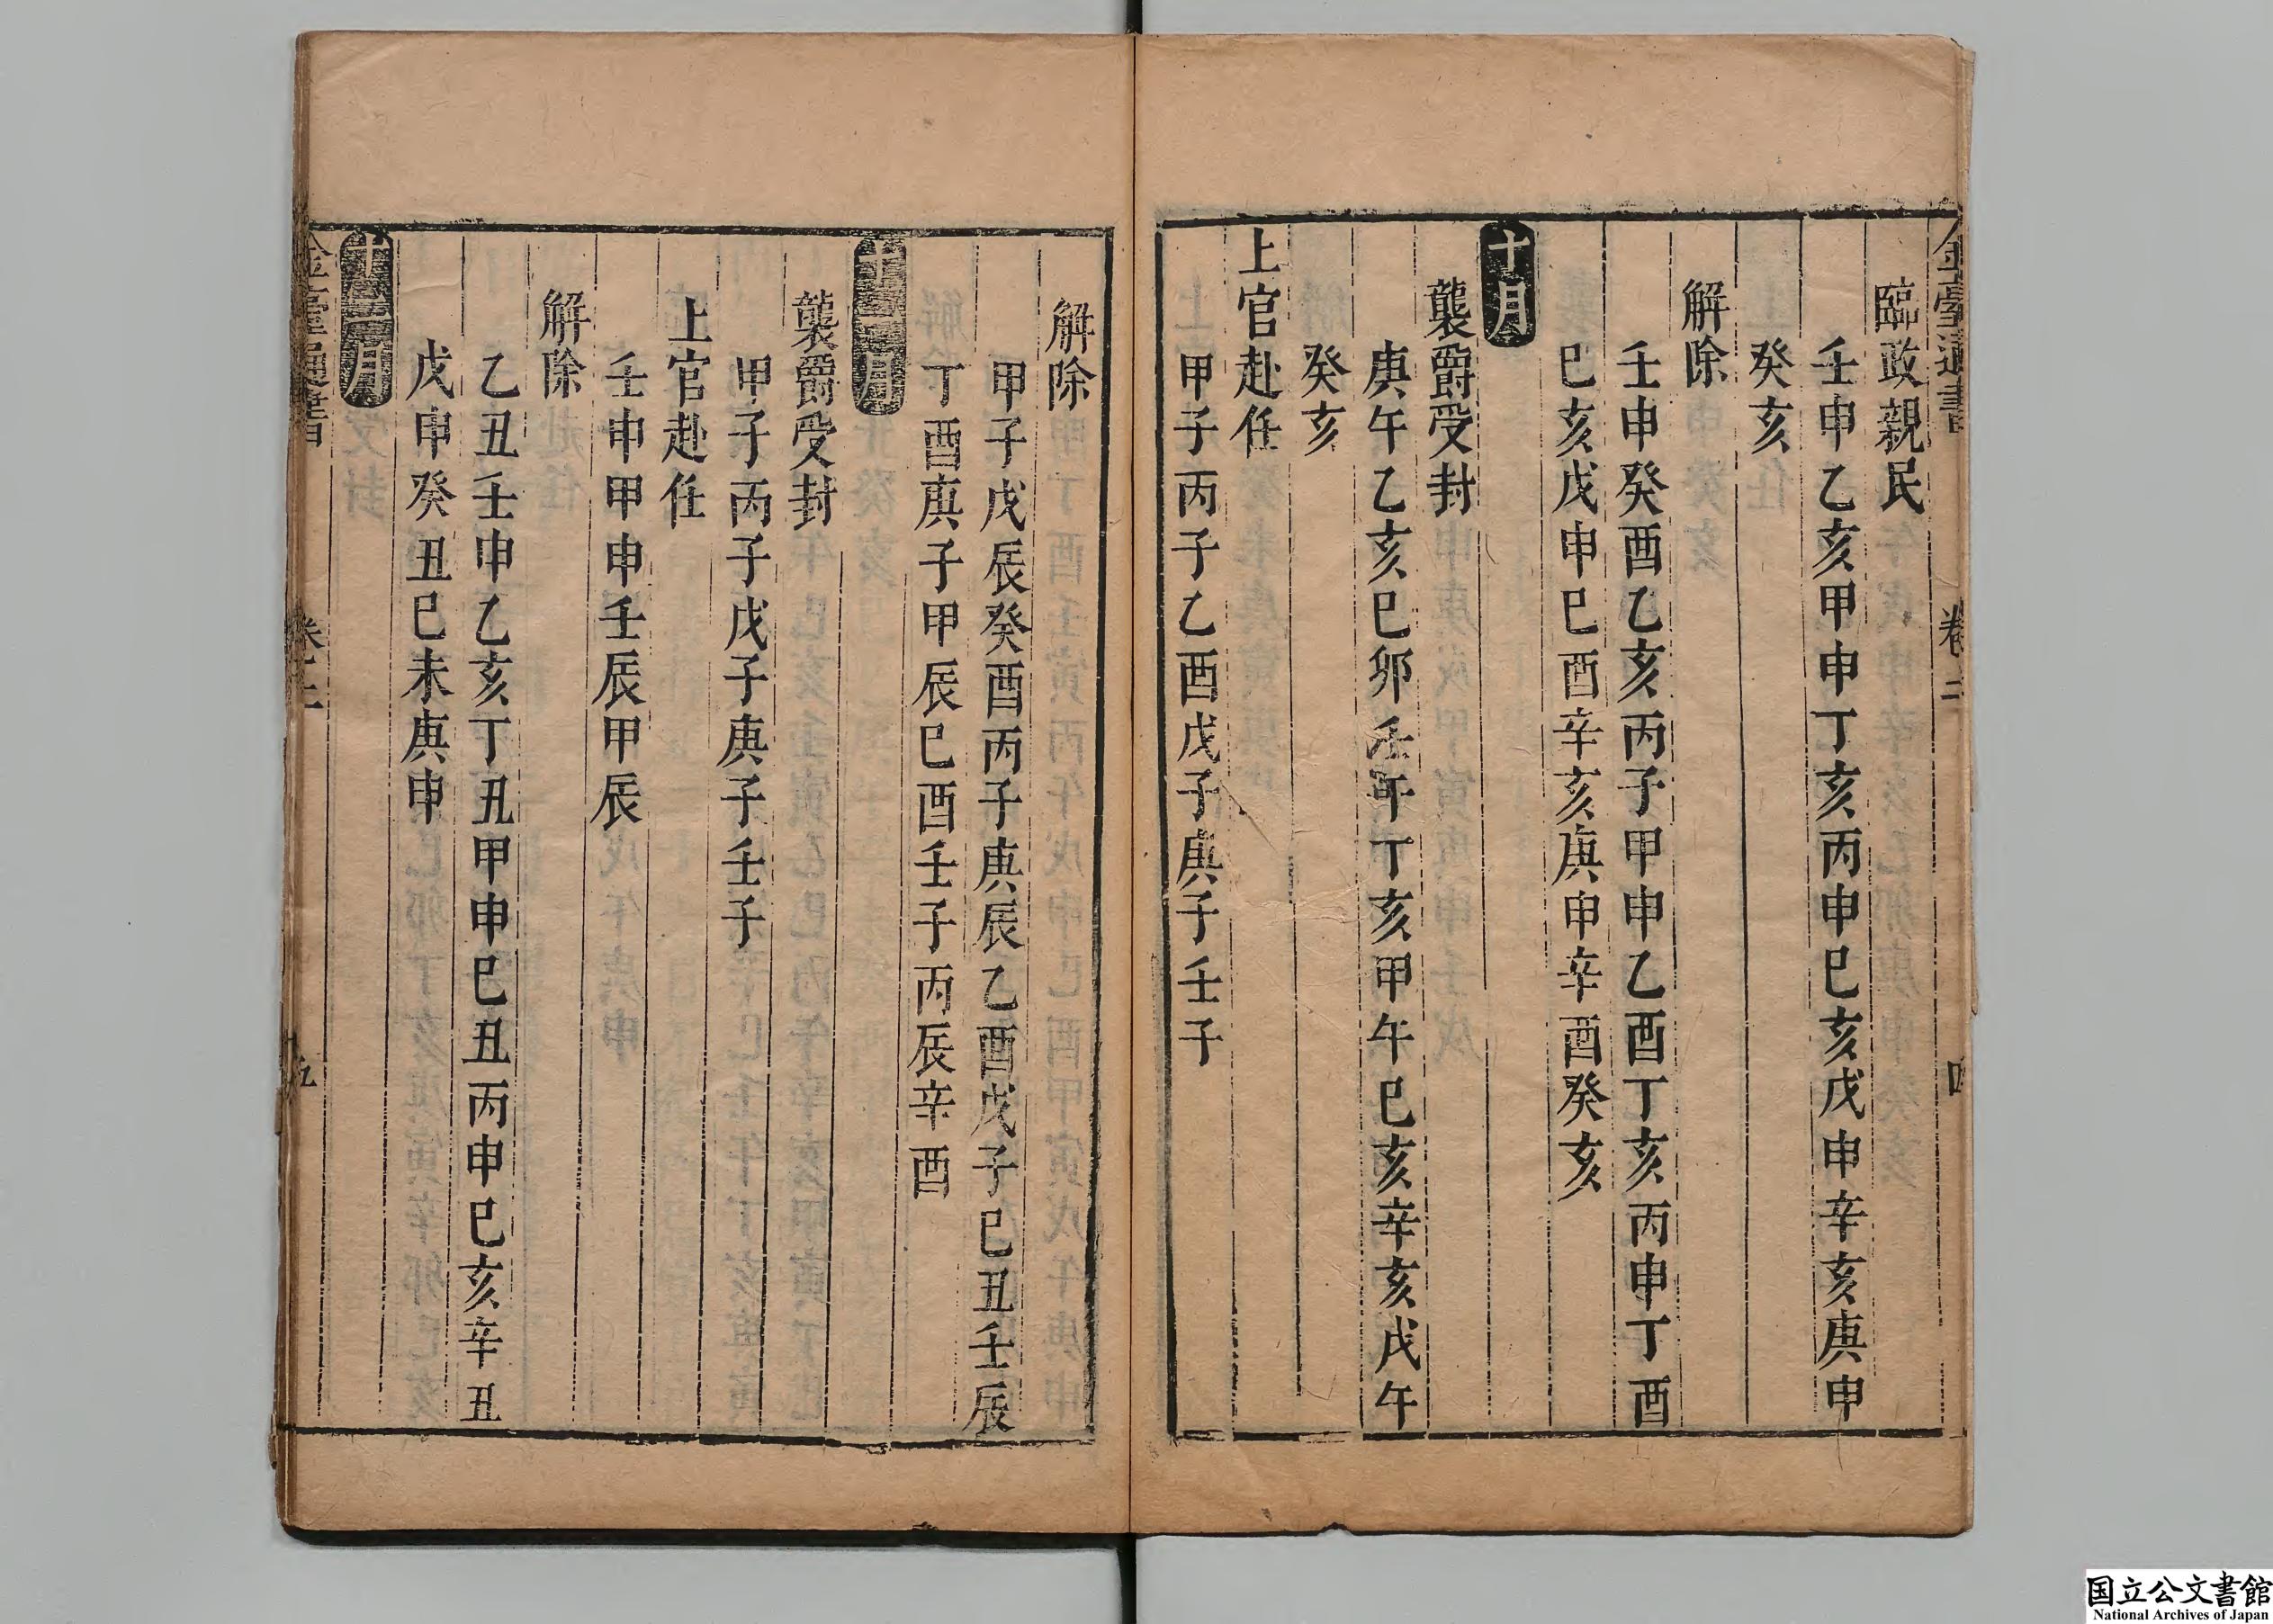 臨政親民
壬申乙亥甲申丁亥丙申巳亥戊申辛亥庚申
癸亥
解除
壬申癸酉乙亥丙子甲申乙酉丁亥丙申丁酉
巳亥戊申巳酉辛亥庚申辛酉癸亥
十月
襲爵受封
庚午乙亥巳卯壬午丁亥甲午巳亥辛亥戊午
癸亥
上官赴任
甲子丙子乙酉戊子庚子壬子
金臺通書
卷二
四
解除
甲子戊辰癸酉丙子庚辰乙酉戊子巳丑壬辰
丁酉庚子甲辰巳酉壬子丙辰辛酉
十一月
襲爵受封
甲子丙子戊子庚子壬子
上官赴任
壬申甲申壬辰甲辰
解除
乙丑壬申乙亥丁丑甲申巳丑丙申巳亥辛丑
戊申癸丑巳未庚申
十二月
金臺通書
卷二
五
国立公文書館
National Archives of Japan